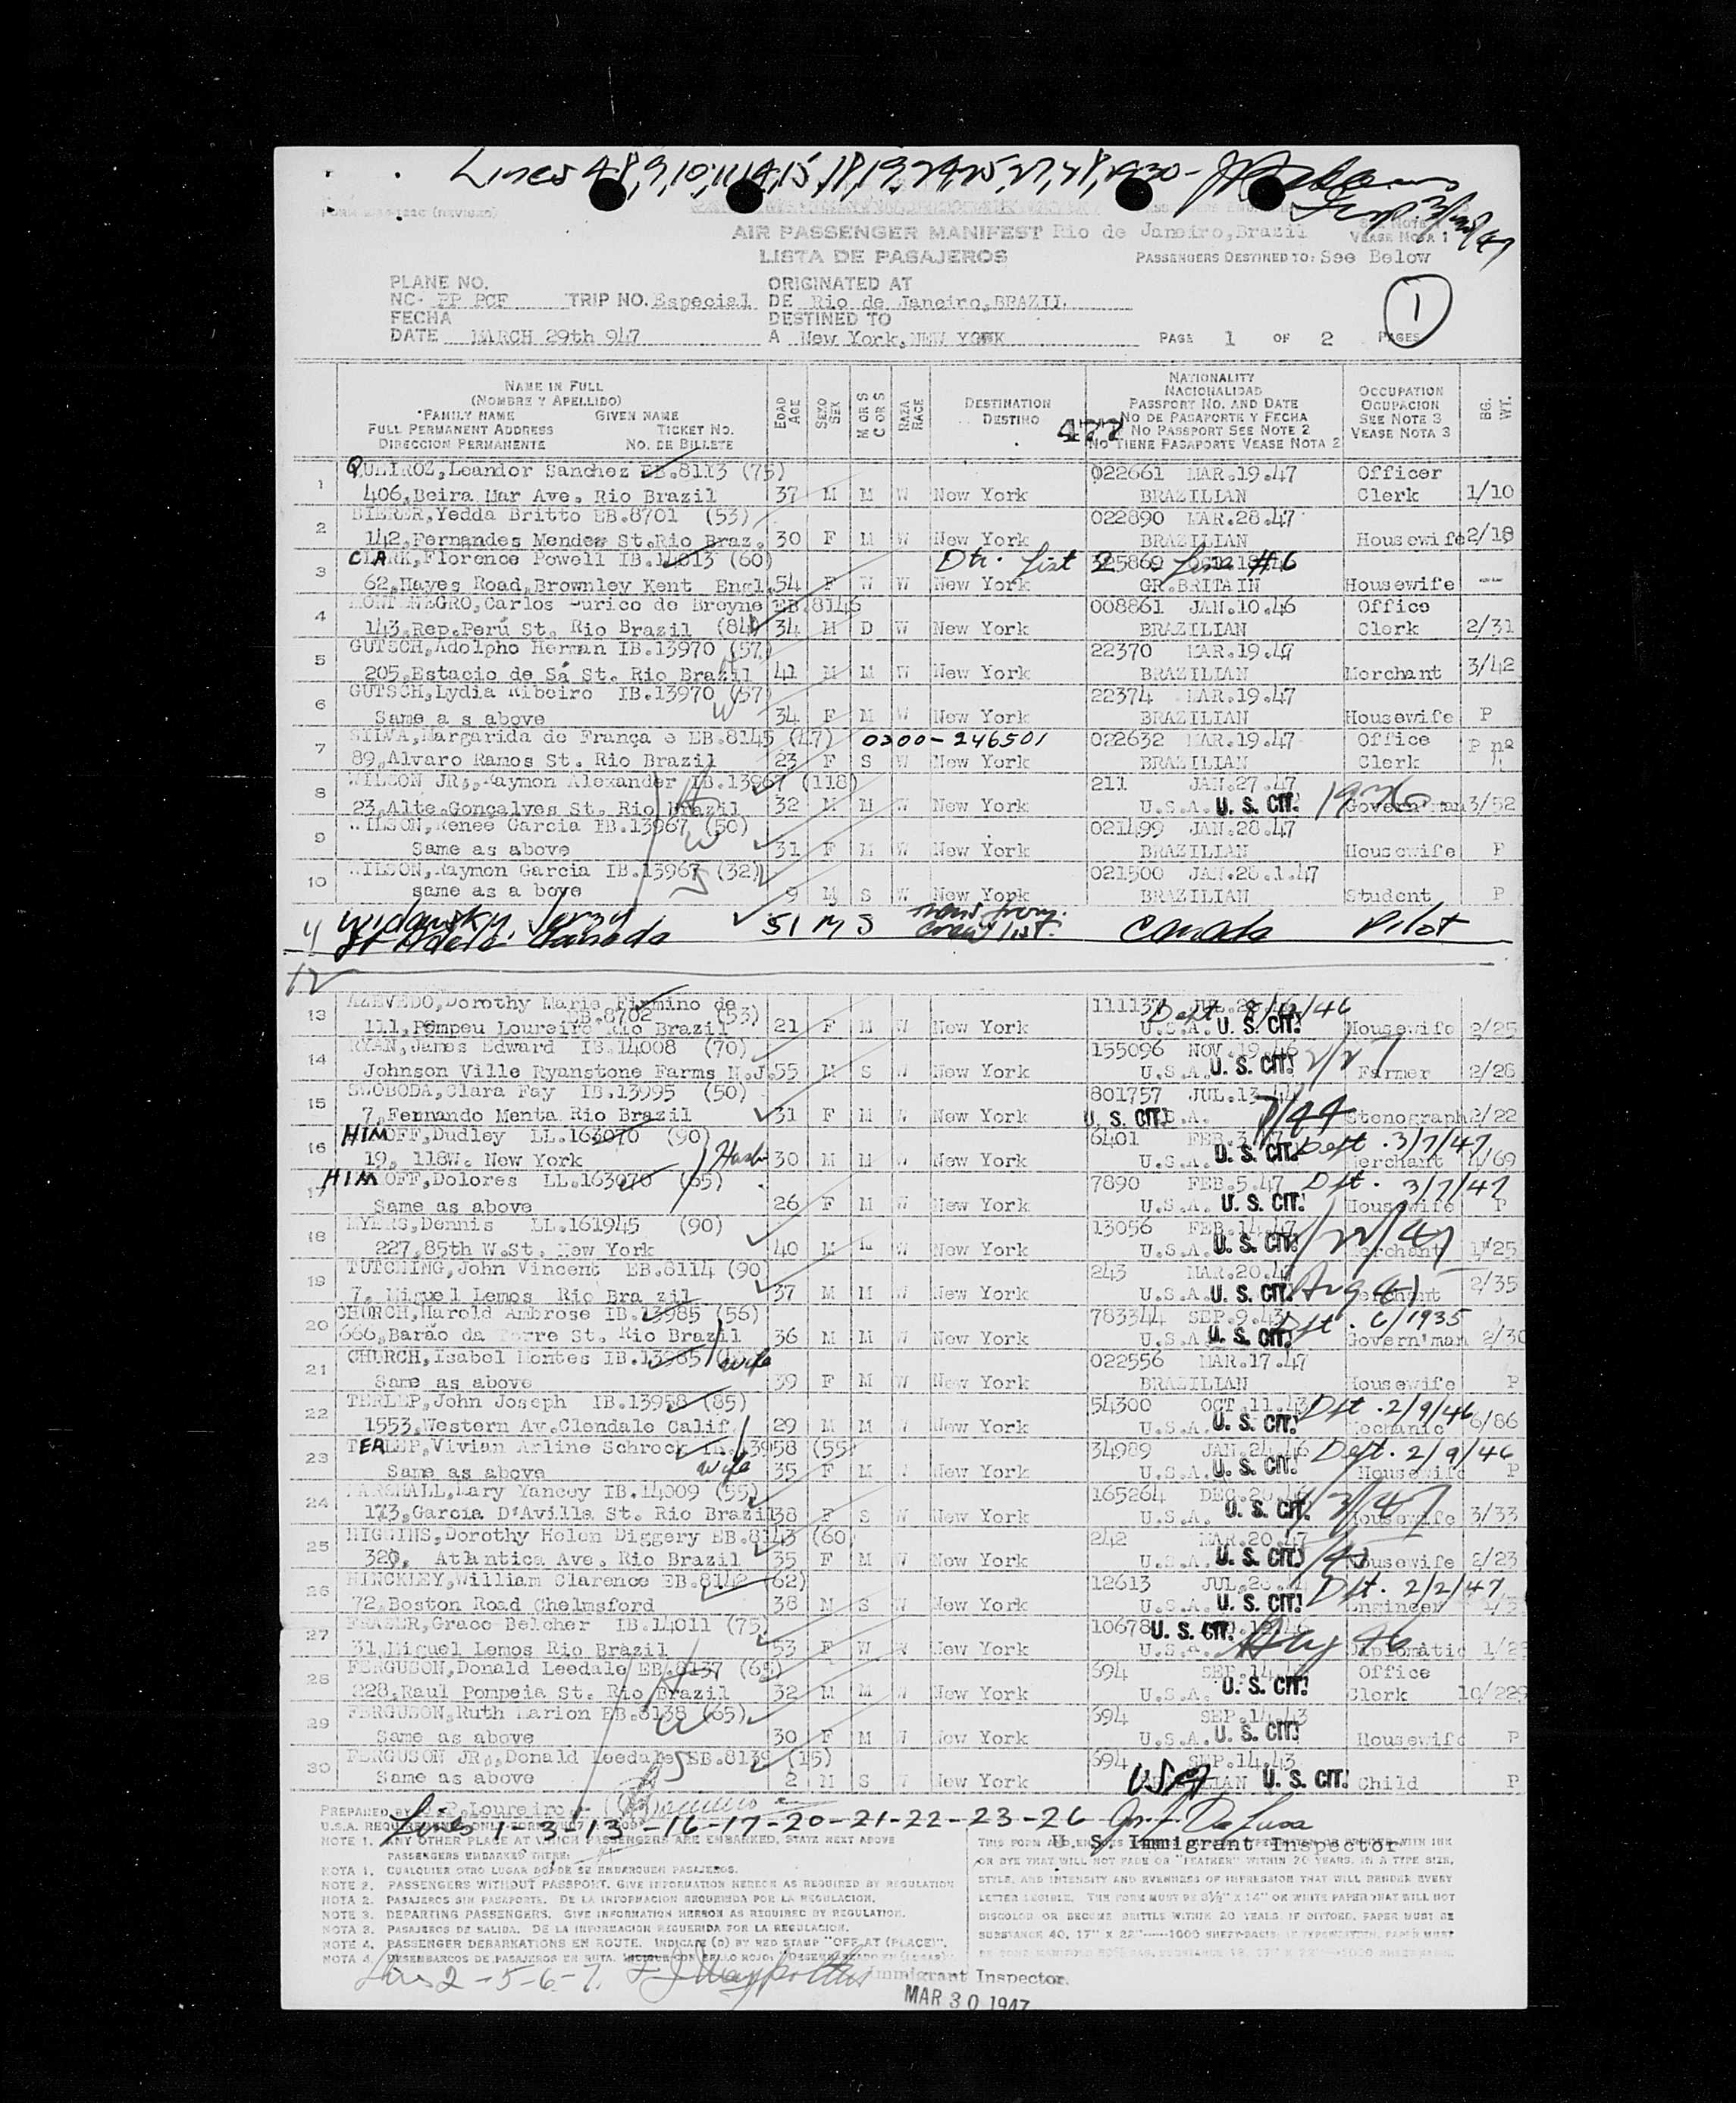 Lines 4,8,9,10,11,14,15,18,19,24,25,27,28,29,30-
AIR PASSENGER MANIFEST Rio de Janeiro,Brazil
SEE NOTE 1
VEASE NOTA 1
LISTA DE PASAJEROS PASSENGERS DESTINED TO: See Below
PLANE NO. ORIGINATED AT
NC- PP PCF TRIP NO. Especial DE Rio de Janeiro,BRAZIL
FECHA DESTINED TO
DATE MARCH 29th 947 A New York,NEW YORK PAGE 1 OF 2 PAGES
1
NAME IN FULL
(NOMBRE Y APELLIDO)
FAMILY NAME GIVEN NAME
FULL PERMANENT ADDRESS TICKET NO.
DIRECCION PERMANENTE NO. DE BILLETE
EDAD AGE
SEXO SEX
M OR S C OR S
RAZA RACE
DESTINATION
DESTINO
NATIONALITY
NACIONALIDAD
PASSPORT NO. AND DATE
NO DE PASAPORTE Y FECHA
477 NO PASSPORT SEE NOTE 2
NO TIENE PASAPORTE VEASE NOTA 2
OCCUPATION
OCUPACION
SEE NOTE 3
VEASE NOTA 3
BG. WT.
QUEIROZ,Leandor Sanchez EB.8113 (75) 022661 MAR.19.47 Officer
1 406,Beira Mar Ave. Rio Brazil 37 M M W New York BRAZILIAN Clerk 1/10
BIERER,Yedda Britto EB.8701 (53) 022890 MAR.28.47
2 142,Fernandes Mendes St.Rio Braz. 30 F M W New York BRAZILIAN Housewife 2/18
CLARK,Florence Powell IB.14013 (60) Dtr. List 2 Line #6
3 62,Hayes Road,Brownley Kent Engl. 54 F W W New York GR.BRITAIN Housewife --
MONTENEGRO,Carlos Eurico de Breyne EB.8146 008861 JAN.10.46 Office
4 143,Rep.Perú St. Rio Brazil (84) 34 M D W New York BRAZILIAN Clerk 2/31
GUTSCH,Adolpho Herman IB.13970 (57) 22370 MAR.19.47
5 205,Estacio de Sá St. Rio Brazil 41 M M W New York BRAZILIAN Merchant 3/42
GUTSCH,Lydia Ribeiro IB.13970 (57) 22374 MAR.19.47
6 Same a s above W 34 F M W New York BRAZILIAN Housewife P
SILVA,Margarida de França e EB.8145 (47) 0300-246501 022632 MAR.19.47 Office
7 89,Alvaro Ramos St. Rio Brazil 23 F S W New York BRAZILIAN Clerk P nº
WILSON JR.,Raymon Alexander IB.13967 (118) 211 JAN.27.47
8 23,Alte.Gonçalves St. Rio Brazil H 32 M M W New York U.S.A. U. S. CIT. Govern'man 3/52
WILSON,Renee Garcia IB.13967 (50) 021499 JAN.28.47
9 Same as above W 31 F M W New York BRAZILIAN Housewife P
WILSON,Raymon Garcia IB.13967 (32) 021500 JAN.28.1.47
10 same as a bove S 9 M S W New York BRAZILIAN Student P
Widansky, Jerzy 51 M S Trans from Canada Pilot
11 Canada crew list.
12
AZEVEDO,Dorothy Marie Firmino de Dept 8/6/46
13 EB.8702 (53)
111,Pompeu Loureiro Rio Brazil 21 F M W New York U.S.A. U. S. CIT. Housewife 2/25
RYAN,James Edward IB.14008 (70) 155096 NOV.19.46
14 Johnson Ville Ryanstone Farms N.J. 55 M S W New York U.S.A. U. S. CIT. Farmer 2/28
SWOBODA,Clara Fay IB.13995 (50) 801757 JUL.13.44
15 7,Fernando Menta Rio Brazil 31 F M W New York U. S. CIT. 7/44 Stenograph 2/22
HIMOFF,Dudley LL.163070 (90) 6401 FEB.3.47 Dept. 3/7/47
16 19, 118W. New York Husb 30 M M W New York U.S.A. U. S. CIT. Merchant 4/69
HIMOFF,Dolores LL.163070 (65) 7890 FEB.5.47 Dpt. 3/7/47
17 Same as above 26 F M W New York U.S.A. U. S. CIT. Housewife P
MYERS,Dennis LL.161945 (90) 13056 FEB.14.47
18 227,85th W.St. New York 40 M M W New York U.S.A. U. S. CIT. Merchant 1/25
TUTCHING,John Vincent EB.8114 (90) 243 MAR.20.47
19 7, Miguel Lemos Rio Bra zil 37 M M W New York U.S.A. U. S. CIT. Aug 41 Merchant 2/35
CHURCH,Harold Ambrose IB.13985 (56) 783344 SEP.9.43 Dpt. 6/1935
20 666,Barão da Torre St. Rio Brazil 36 M M W New York U.S.A. U. S. CIT. Govern'man 2/30
CHURCH,Isabel Montes IB.13985 wife 022556 MAR.17.47
21 Same as above 39 F M W New York BRAZILIAN Housewife P
TERLEP,John Joseph IB.13958 (85) 54300 OCT.11.43 Dpt. 2/9/46
22 1553,Western Av.Glendale Calif. 29 M M W New York U.S.A. U. S. CIT. Mechanic 6/86
TERLEP,Vivian Arline Schrock IB.13958 (55) 34989 JAN.24.46 Dept. 2/9/46
23 Same as above wife 35 F M W New York U.S.A. U. S. CIT. Housewife P
MARSHALL,Mary Yancey IB.14009 (55) 165264 DEC.20.46
24 173,Garcia D'Avilla St. Rio Brazil 38 F S W New York U.S.A. U. S. CIT. Housewife 3/33
HIGGINS,Dorothy Helen Diggery EB.8143 (60) 242 MAR.20.47
25 320, Atlantica Ave. Rio Brazil 35 F M W New York U.S.A. U. S. CIT. Housewife 2/23
HINCKLEY,William Clarence EB.8142 (62) 12613 JUL.26. Dpt. 2/2/47
26 72,Boston Road Chelmsford 38 M S W New York U.S.A. U. S. CIT. Engineer
FRASER,Grace Belcher IB.14011 (75) 10678 U. S. CIT. Aug 46
27 31,Miguel Lemos Rio Brazil 53 F W W New York U.S.A. Diplomatic
FERGUSON,Donald Leedale EB.8137 (65) 394 SEP.14.43 Office
28 228,Raul Pompeia St. Rio Brazil H 32 M M W New York U.S.A. U. S. CIT. Clerk 10/229
FERGUSON,Ruth Larion EB.8138 (65) 394 SEP.14.43
29 Same as above W 30 F M W New York U.S.A. U. S. CIT. Housewife P
FERGUSON JR.,Donald Leedale EB.8139 (15) 394 SEP.14.43
30 Same as above S 2 M S W New York USA BRAZILIAN U. S. CIT. Child P
PREPARED BY Loureiro
Lines 1-3-13-16-17-20-21-22-23-26
U. S. Immigrant Inspector
NOTE 1. ANY OTHER PLACE AT WHICH PASSENGERS ARE EMBARKED, STATE NEXT ABOVE
PASSENGERS EMBARKED THERE:
NOTA 1. CUALQUIER OTRO LUGAR DONDE SE EMBARQUEN PASAJEROS.
NOTE 2. PASSENGERS WITHOUT PASSPORT. GIVE INFORMATION HEREON AS REQUIRED BY REGULATION
NOTA 2. PASAJEROS SIN PASAPORTE. DE LA INFORMACION REQUERIDA POR LA REGULACION.
NOTE 3. DEPARTING PASSENGERS. GIVE INFORMATION HEREON AS REQUIRED BY REGULATION.
NOTA 3. PASAJEROS DE SALIDA. DE LA INFORMACION REQUERIDA POR LA REGULACION.
NOTE 4. PASSENGER DEBARKATIONS EN ROUTE. INDICATE (D) BY RED STAMP "OFF AT (PLACE)".
NOTA 4. DESEMBARCOS DE PASAJEROS EN RUTA.
OR DYE THAT WILL NOT FADE OR "FEATHER" WITHIN 20 YEARS, IN A TYPE SIZE,
STYLE, AND INTENSITY AND EVENNESS OF IMPRESSION THAT WILL RENDER EVERY
LETTER LEGIBLE. THE FORM MUST BE 8½" X 14" ON WHITE PAPER THAT WILL NOT
DISCOLOR OR BECOME BRITTLE WITHIN 20 YEARS.
Lines 2-5-6-7.
Immigrant Inspector.
MAR 30 1947